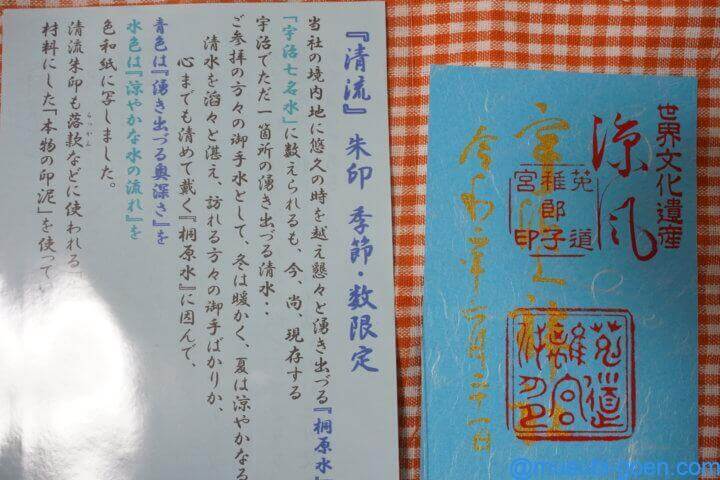 『清流』 朱印 季節・数限定
当社の境内地に悠久の時を越え懇々と湧き出づる『桐原水』
「宇治七名水」に数えられるも、今、尚、現存する
宇治でただ一箇所の湧き出づる清水・・
ご参拝の方々の御手水として、冬は暖かく、夏は涼やかなる
清水を滔々と湛え、訪れる方々の御手ばかりか、
心までも清めて戴く『桐原水』に因んで、
青色は『湧き出づる奥深さ』を
水色は『涼やかな水の流れ』を
色和紙に写しました。
清流朱印も落款などに使われる
らっかん
材料にした『本物の印泥』を使って
世界文化遺産
涼風
菟道
稚郎子
宮印
菟道
離宮
宇治上神社
令和二年六月二十一日
@musubi-goen.com